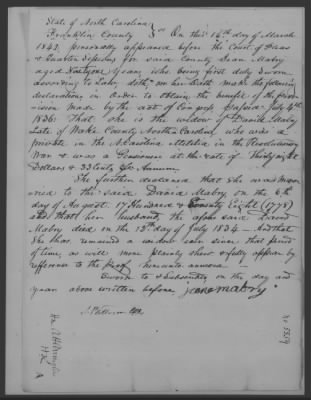 State of North Carolina
Franklin County } SS On this 16th day of March
1842, personally appeared before the Court of Pleas
& Quarter Sessions for said County Jean Mabry
aged years who being first duly sworn
according to Law doth on her Oath make the following
declaration in order to obtain the benefit of the prov-
ision made by the act of Congress passed July 4th
1836: That she is the widow of David Mabry
Late of Wake County North Carolina who was a
private in the N. Carolina Militia in the Revolutionary
War & was a Pensioner at the rate of Thirty
Dollars & 33 Cents Pr. Annum.
She further declares that she was mar
ried to the said David Mabry on the 6th
day of August 17 Hundred & Seventy Eight (1778)
& that her husband the afore said David
Mabry died on the 15th day of July 1834 — And that
She has remained a widow ever since that period
of time, as will more plainly show & fully appear by
reference to the proof hereunto annexed —
Sworn to & Subscribed on the day and
year above written before jeane mabry
S. Patterson
No 5559